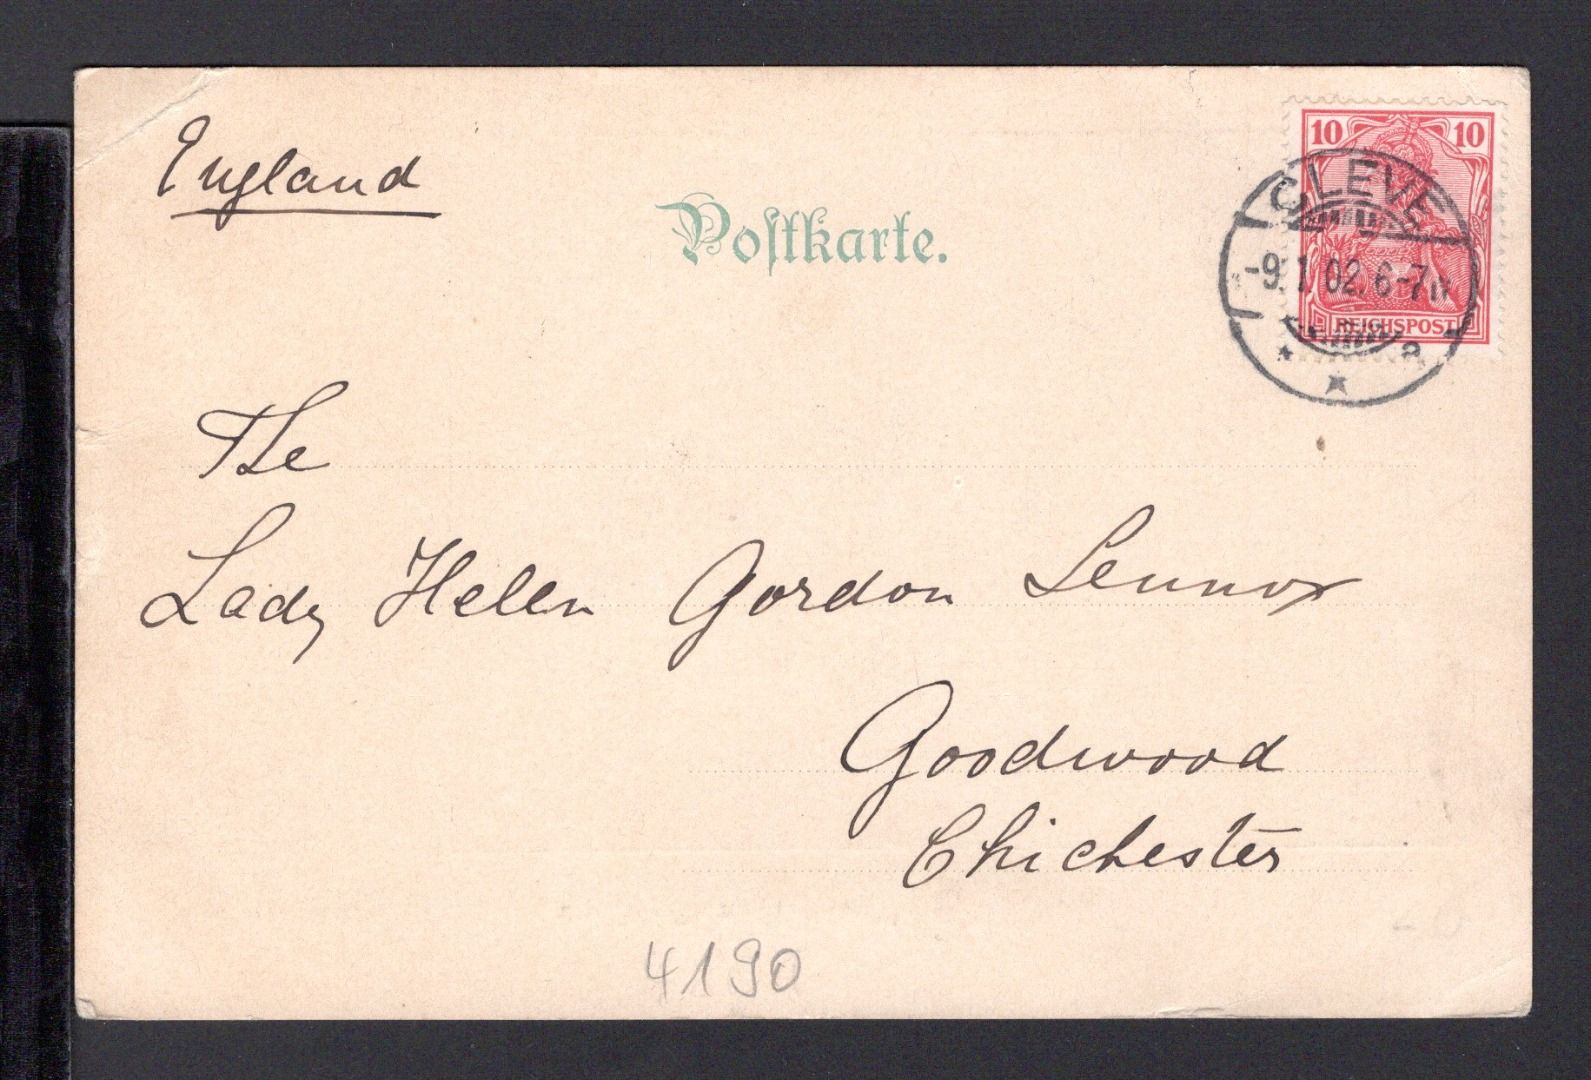 England
Postkarte.
10 10
CLEVE
-9.1.02.6-7N
REICHSPOST
* * * a
The
Lady Helen Gordon Lennox
Goodwood
Chichester
4190